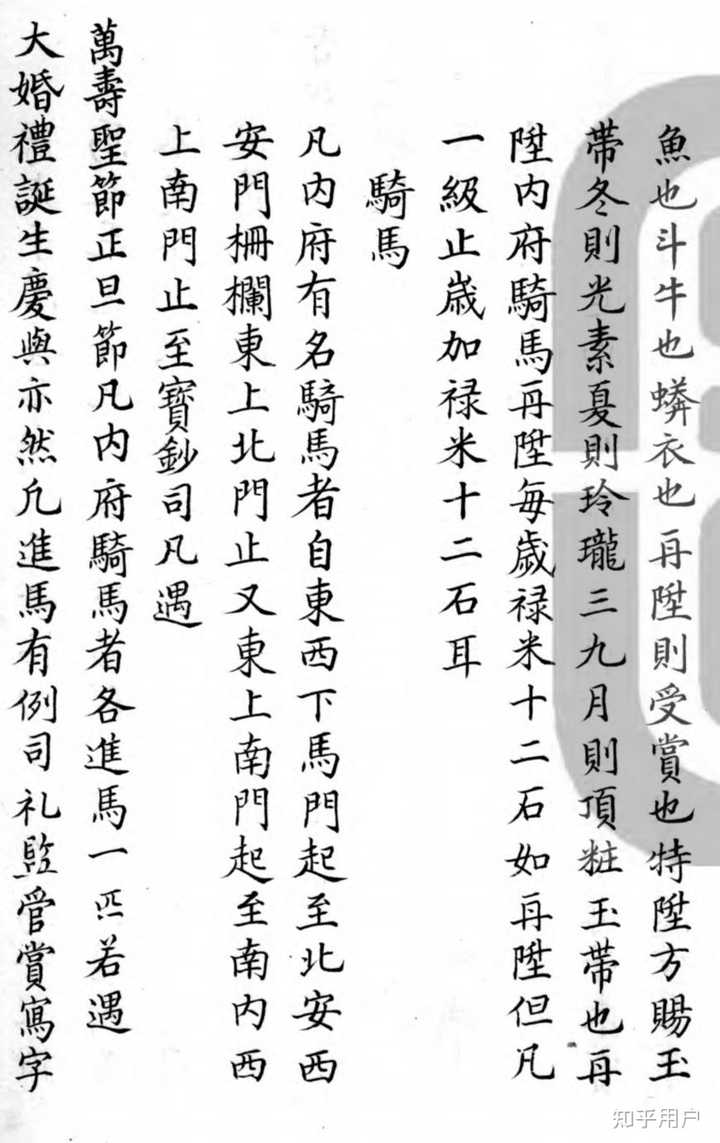 魚也斗牛也蟒衣也再陞則受賞也特陞方賜玉
帶冬則光素夏則玲瓏三九月則頂粧玉帶也再
陞內府騎馬再陞每歲禄米十二石如再陞但凡
一級止歲加禄米十二石耳
騎馬
凡內府有名騎馬者自東西下馬門起至北安西
安門柵欄東上北門止又東上南門起至南內西
上南門止至寶鈔司凡遇
萬壽聖節正旦節凡內府騎馬者各進馬一匹若遇
大婚禮誕生慶與亦然凡進馬有例司礼監管賞寫字
知乎用户